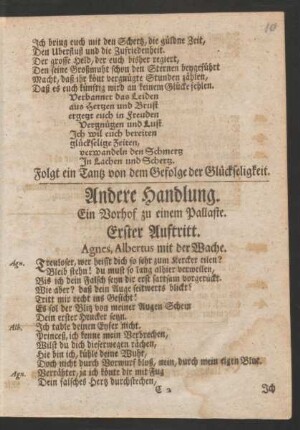 10
Ich bring euch mit den Schertz, die güldne Zeit,
Den Uberfluß und die Zufriedenheit.
Der grosse Held, der euch bisher regiert,
Den seine Großmuht schon den Sternen beygeführt
Macht, daß ihr könt vergnügte Stunden zählen,
Daß es euch künfftig wird an keinem Glücke fehlen.
Verbannet das Leiden
aus Hertzen und Brust
ergetzt euch in Freuden
Vergnügen und Lust.
Ich wil euch bereiten
glückselige Zeiten,
verwandeln den Schmertz
In Lachen und Schertz.
Folgt ein Tantz von dem Gefolge der Glückseligkeit.
Andere Handlung.
Ein Vorhof zu einem Pallaste.
Erster Auftritt.
Agnes, Albertus mit der Wache.
Agn. Treuloser, wer heist dich so sehr zum Kercker eilen?
Bleib stehn! du must so lang alhier verweilen,
Bis ich dein Falsch seyn dir erst sattsam vorgerückt.
Wie aber? daß dein Auge seitwerts blickt?
Tritt mir recht ins Gesicht!
Es sol der Blitz von meiner Augen Schein
Dein erster Hencker seyn.
Alb. Ich tadle deinen Eyfer nicht.
Princeß, ich kenne mein Verbrechen,
Wilst du dich dieserwegen rächen,
Hie bin ich, kühle deine Wuht,
Doch nicht durch Vorwurf bloß, nein, durch mein eigen Blut.
Agn. Verrähter, ja ich könte dir mit Fug
Dein falsches Hertz durchstechen,
C 2 Ich